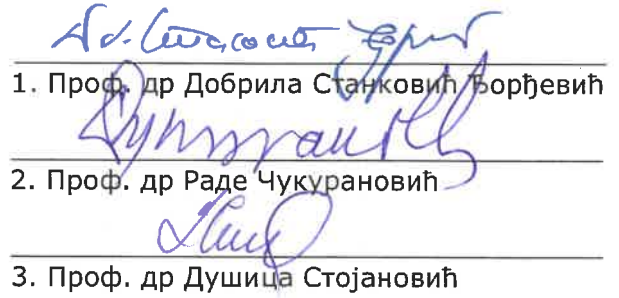 1. Проф. др Добрила Станковић Ђорђевић
2. Проф. др Раде Чукурановић
3. Проф. др Душица Стојановић